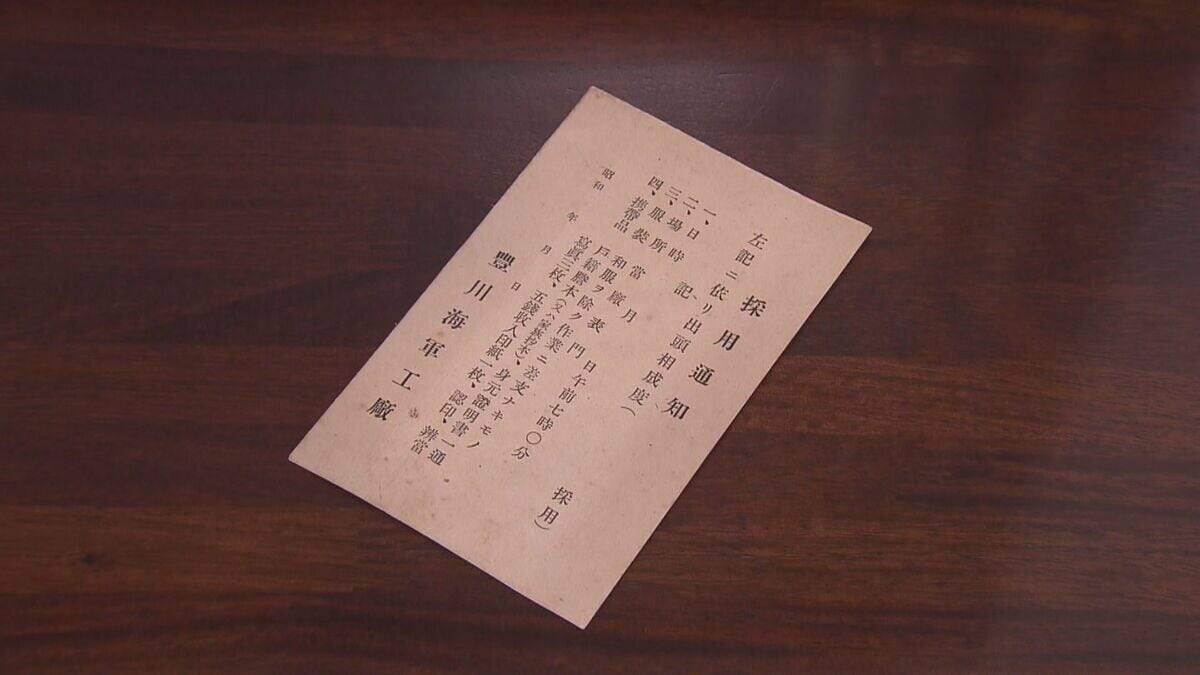 採用通知
左記ニ依リ出頭相成度( 採用)
記
一、日時 月 日午前七時〇分
二、場所 當廠表門
三、服裝 和服ヲ除ク作業ニ差支ナキモノ
四、携帶品 戶籍謄本(又ハ家族抄本)、身元證明書一通
寫眞三枚、五錢收入印紙一枚、認印、辨當
昭和 年 月 日
豐川海軍工廠